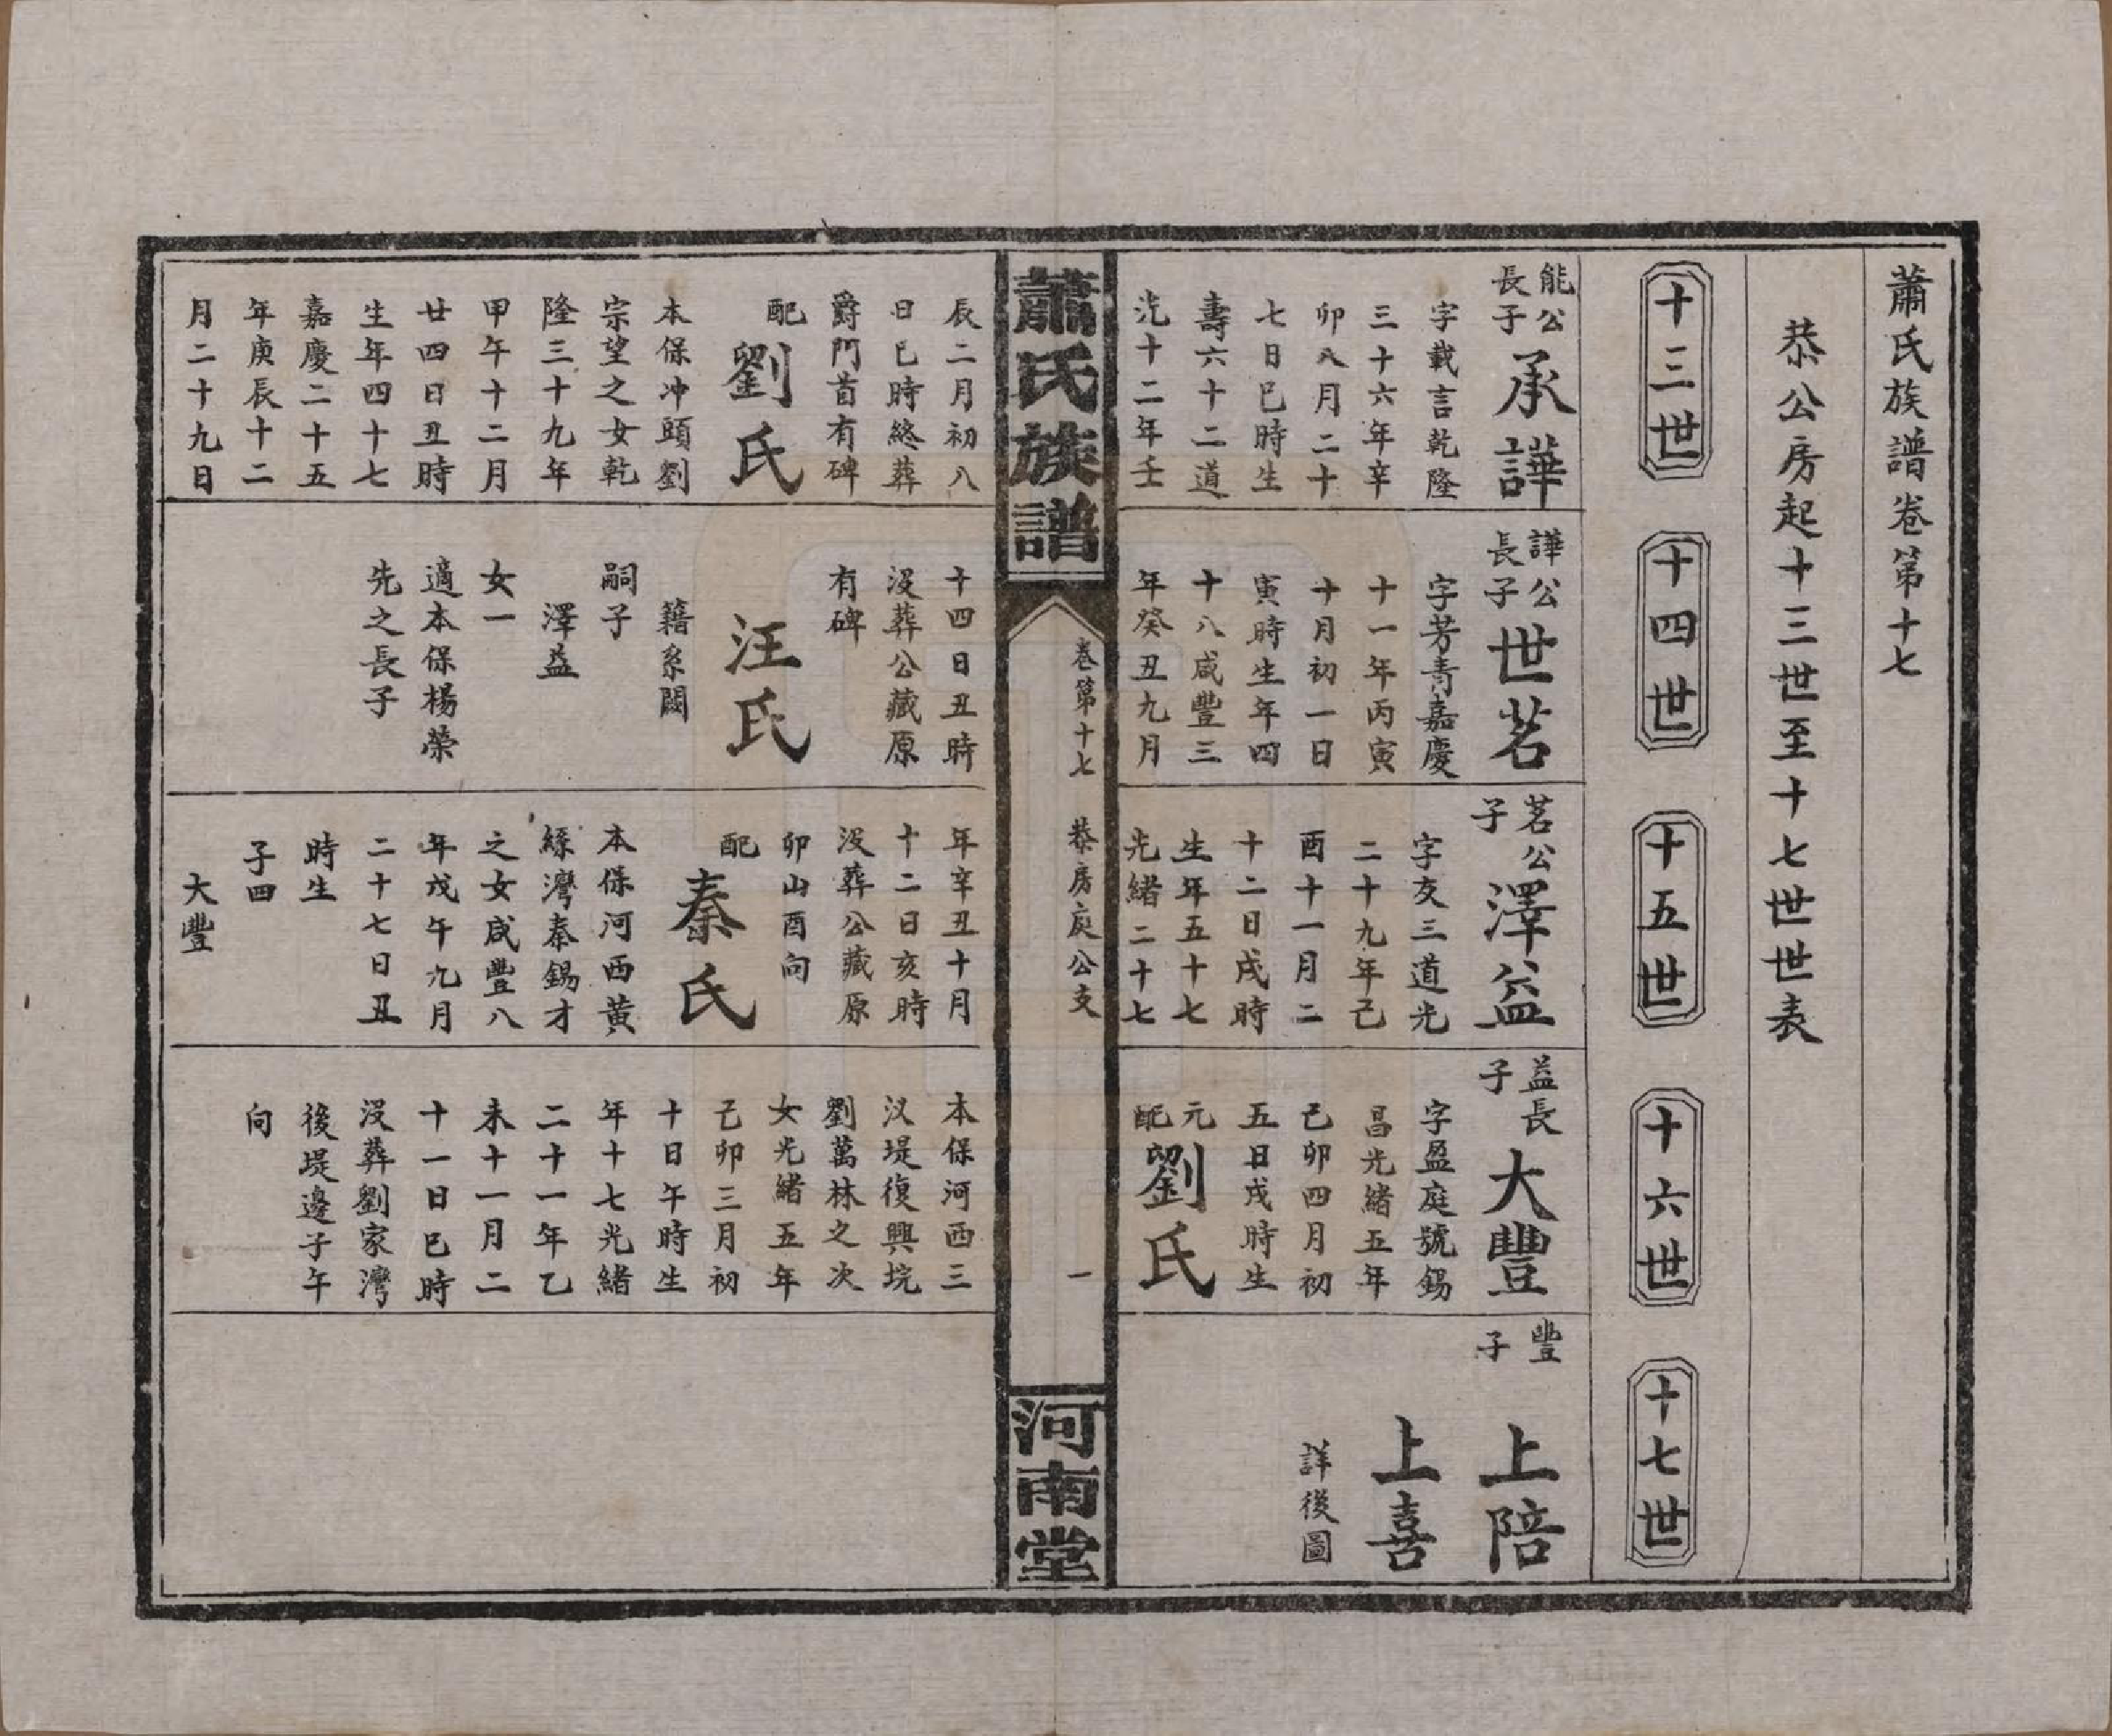 蕭氏族譜卷第十七
恭公房起十三世至十七世世表
十三世
十四世
十五世
十六世
十七世
能公
長子
承譁
字載言乾隆
三十六年辛
卯八月二十
七日巳時生
壽六十二道
光十二年壬
辰二月初八
日巳時終葬
爵門首有碑
配
劉氏
本保冲頭劉
宗望之女乾
隆三十九年
甲午十二月
廿四日丑時
生年四十七
嘉慶二十五
年庚辰十二
月二十九日
譁公
長子
世茗
字芳青嘉慶
十一年丙寅
十月初一日
寅時生年四
十八咸豐三
年癸丑九月
十四日丑時
沒葬公藏原
有碑
汪氏
籍系闕
嗣子
澤益
女一
適本保楊榮
先之長子
茗公
子
澤益
字友三道光
二十九年己
酉十一月二
十二日戌時
生年五十七
光緒二十七
年辛丑十月
十二日亥時
沒葬公藏原
卯山酉向
配
秦氏
本保河西黃
絲灣秦錫才
之女咸豐八
年戊午九月
二十七日丑
時生
子四
大豐
益長
子
大豐
字盈庭號錫
昌光緒五年
己卯四月初
五日戌時生
元
配
劉氏
本保河西三
汊堤復興垸
劉萬林之次
女光緒五年
己卯三月初
十日午時生
年十七光緒
二十一年乙
未十一月二
十一日巳時
沒葬劉家灣
後堤邊子午
向
豐
子
上陪
上喜
詳後圖
蕭氏族譜
卷第十七
恭房庭公支
一
河南堂